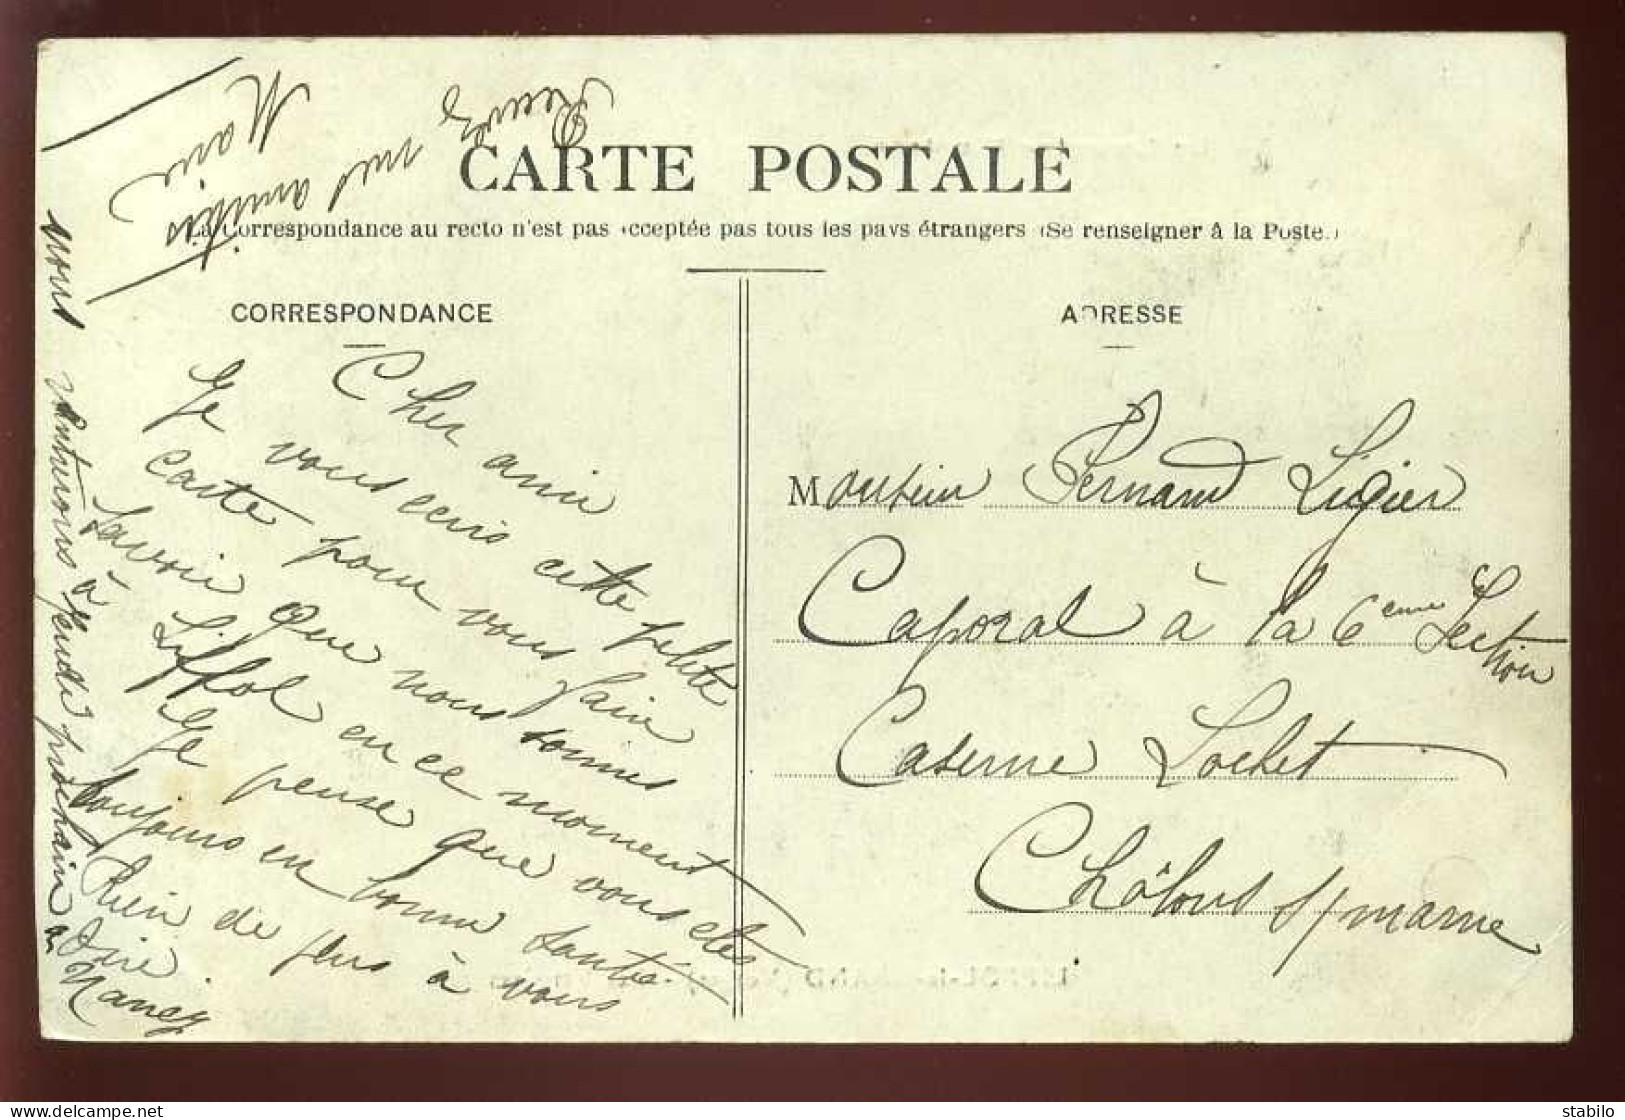 CARTE POSTALE
La Correspondance au recto n'est pas acceptée pas tous les pays étrangers (Se renseigner à la Poste.)
CORRESPONDANCE
Cher ami
Je vous ecris cette petite
carte pour vous fair
savoir que nous sommes
à Liffol en ce moment
Je pense que vous etes
toujours en bonne santé.
Rien de plus à vous
dire.
nous rentrerons Jeudi prochain a
Nancy
Recevez
mes amitiés
Marie
ADRESSE
Monsieur Fernand Ligier
Caporal à la 6eme Section
Caserne Lochet
Châlons s/ marne
LIFFOL-le-GRAND
stabilo